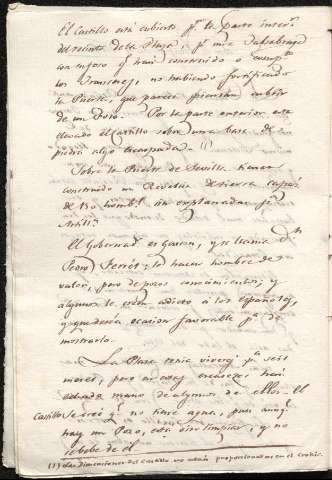 El Castillo está cubierto pr. la parte interr.
del recinto de la Plaza, pr. una
con un foso qe. han construido
los Franceses, no habiendo fortificado
la Puerta, que parece piensan cubrir
de un Foso. Por la parte exterior está
elevado el Castillo sobre una base de
piedra algo escarpada. (1)
Sobre la Puerta de Sevilla tienen
construido un Reducto de tierra capaz
de 150 hombs. sin explanadas pa.
Artilla.
El Gobernadr. es Gascon, y se llama Dn.
Pedro; le hacen hombre de
valor, pero de pocos conocimientos; y
algunos le creen adicto á los Españoles,
y qe. querria ocasion favorable pa. de
mostrarlo.
La Plaza tenia viveres pa. seis
meses, pero en estas escaseces han
echado mano de algunos de ellos. El
Castillo se cree qe. no tiene agua, pues aunqe.
hay un Pozo, está sin limpiar, y no
se bebe de él.
(1) Las dimensiones del Castillo no están proporcionadas en el Croquis.